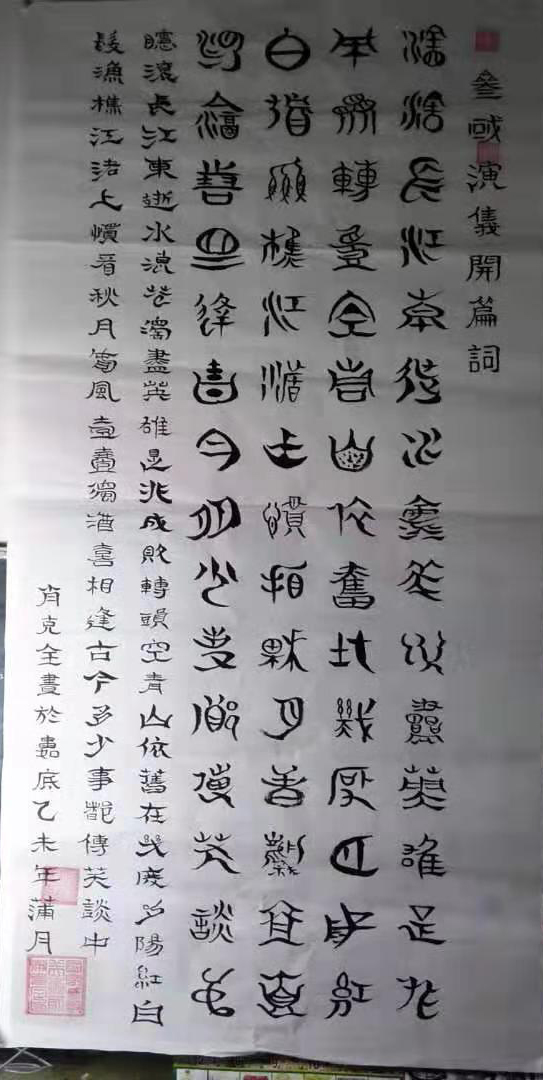 叁國演儀開篇詞
滾滾長江東逝水浪花淘盡英雄是非
成敗轉頭空青山依舊在幾度夕陽紅
白髮漁樵江渚上慣看秋月春風壹壺
濁酒喜相逢古今多少事都傳笑談中
滾滾長江東逝水浪花淘盡英雄是非成敗轉頭空青山依舊在幾度夕陽紅白
髮漁樵江渚上慣看秋月春風壹壺濁酒喜相逢古今多少事都傳笑談中
肖克全書於婁底乙未年蒲月